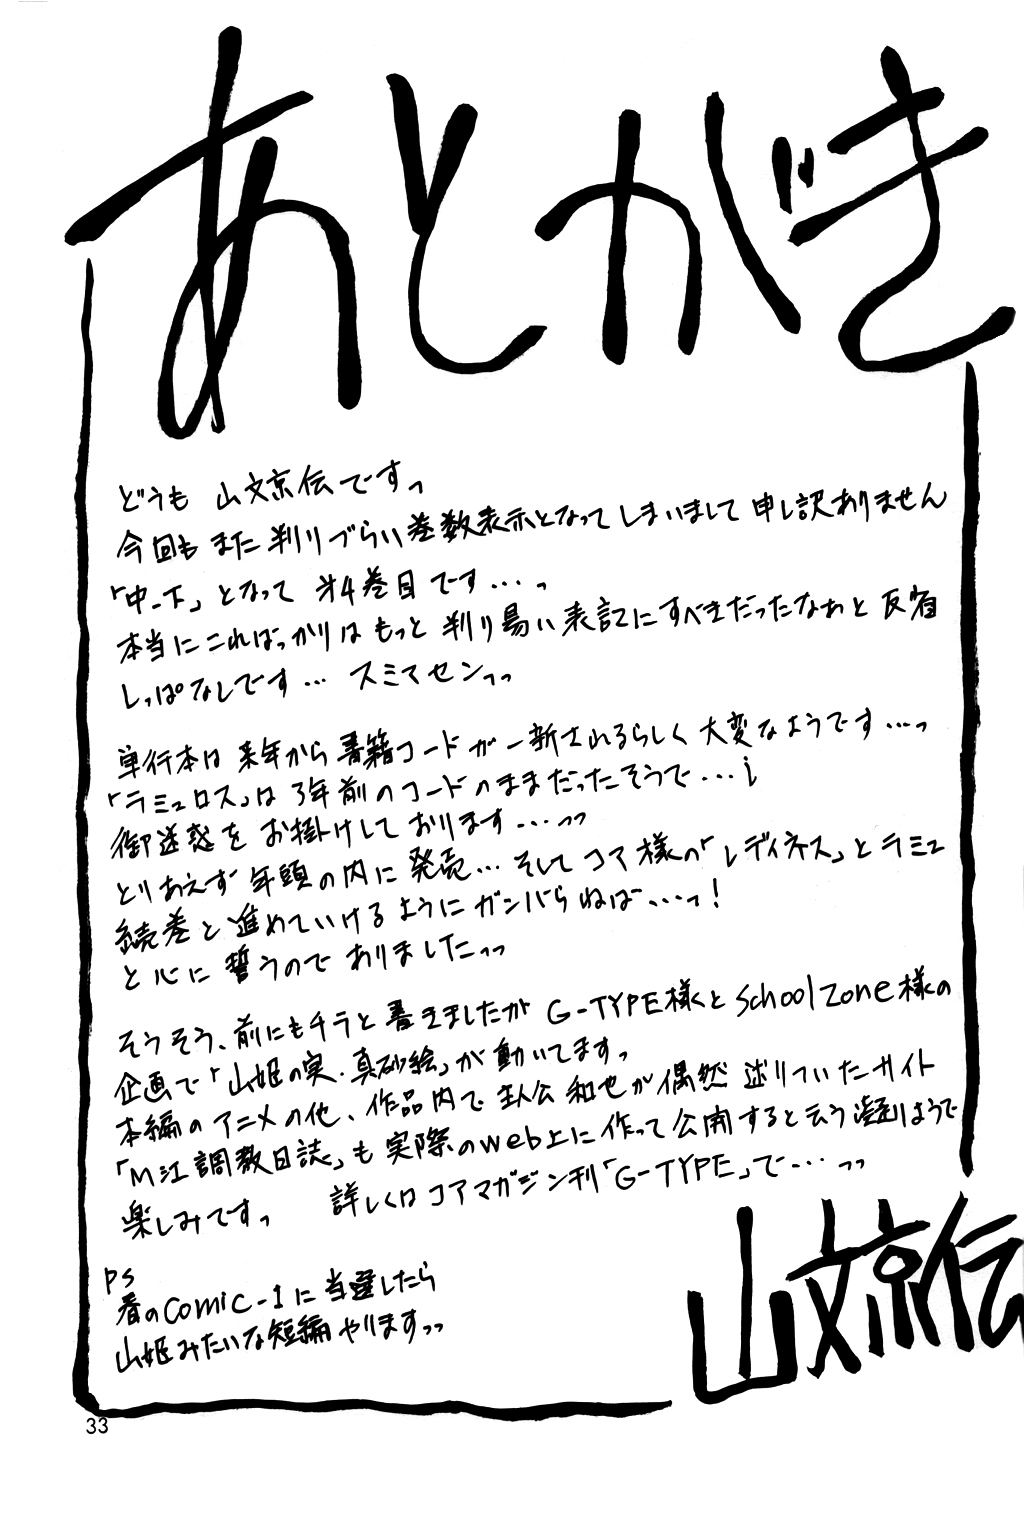 あとがき
どうも 山文京伝ですっ
今回も また 判りづらい 巻数表示となって しまいまして 申し訳ありません
「中-下」となって 第4巻目です…っ
本当に こればっかりは もっと 判り易い 表記にすべきだったなぁと 反省
しっぱなしです… スミマセンっっ
単行本は 来年から 書籍コードが 一新されるらしく 大変なようです…っ
「ラミュロス」は 3年前のコードのままだったそうで…
御迷惑を お掛けしております…っっ
とりあえず 年頭の内に 発売… そして コア様の「レディネス」と ラミュ
続巻と 進めていけるように ガンバらねば…っ!
と心に 誓うのでありましたっっ
そうそう、前にもチラと書きましたが G-TYPE様と schoolzone様の
企画で「山姫の実・真砂絵」が動いてます。
本編のアニメの他、作品内で 主人公 和也が 偶然 辿りついたサイト
「M江調教日誌」も 実際のweb上に 作って 公開すると云う 凝りようで
楽しみですっ 詳しくは コアマガジン刊「G-TYPE」で…っっ
PS
春のcomic-1に当選したら
山姫みたいな短編やりますっっ
山文京伝
33